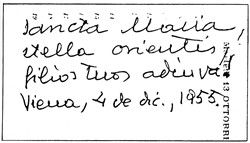 Sancta Maria,
stella orientis,
filios tuos adiuva!
Viena, 4 de dic., 1955.
13 OTTOBRE